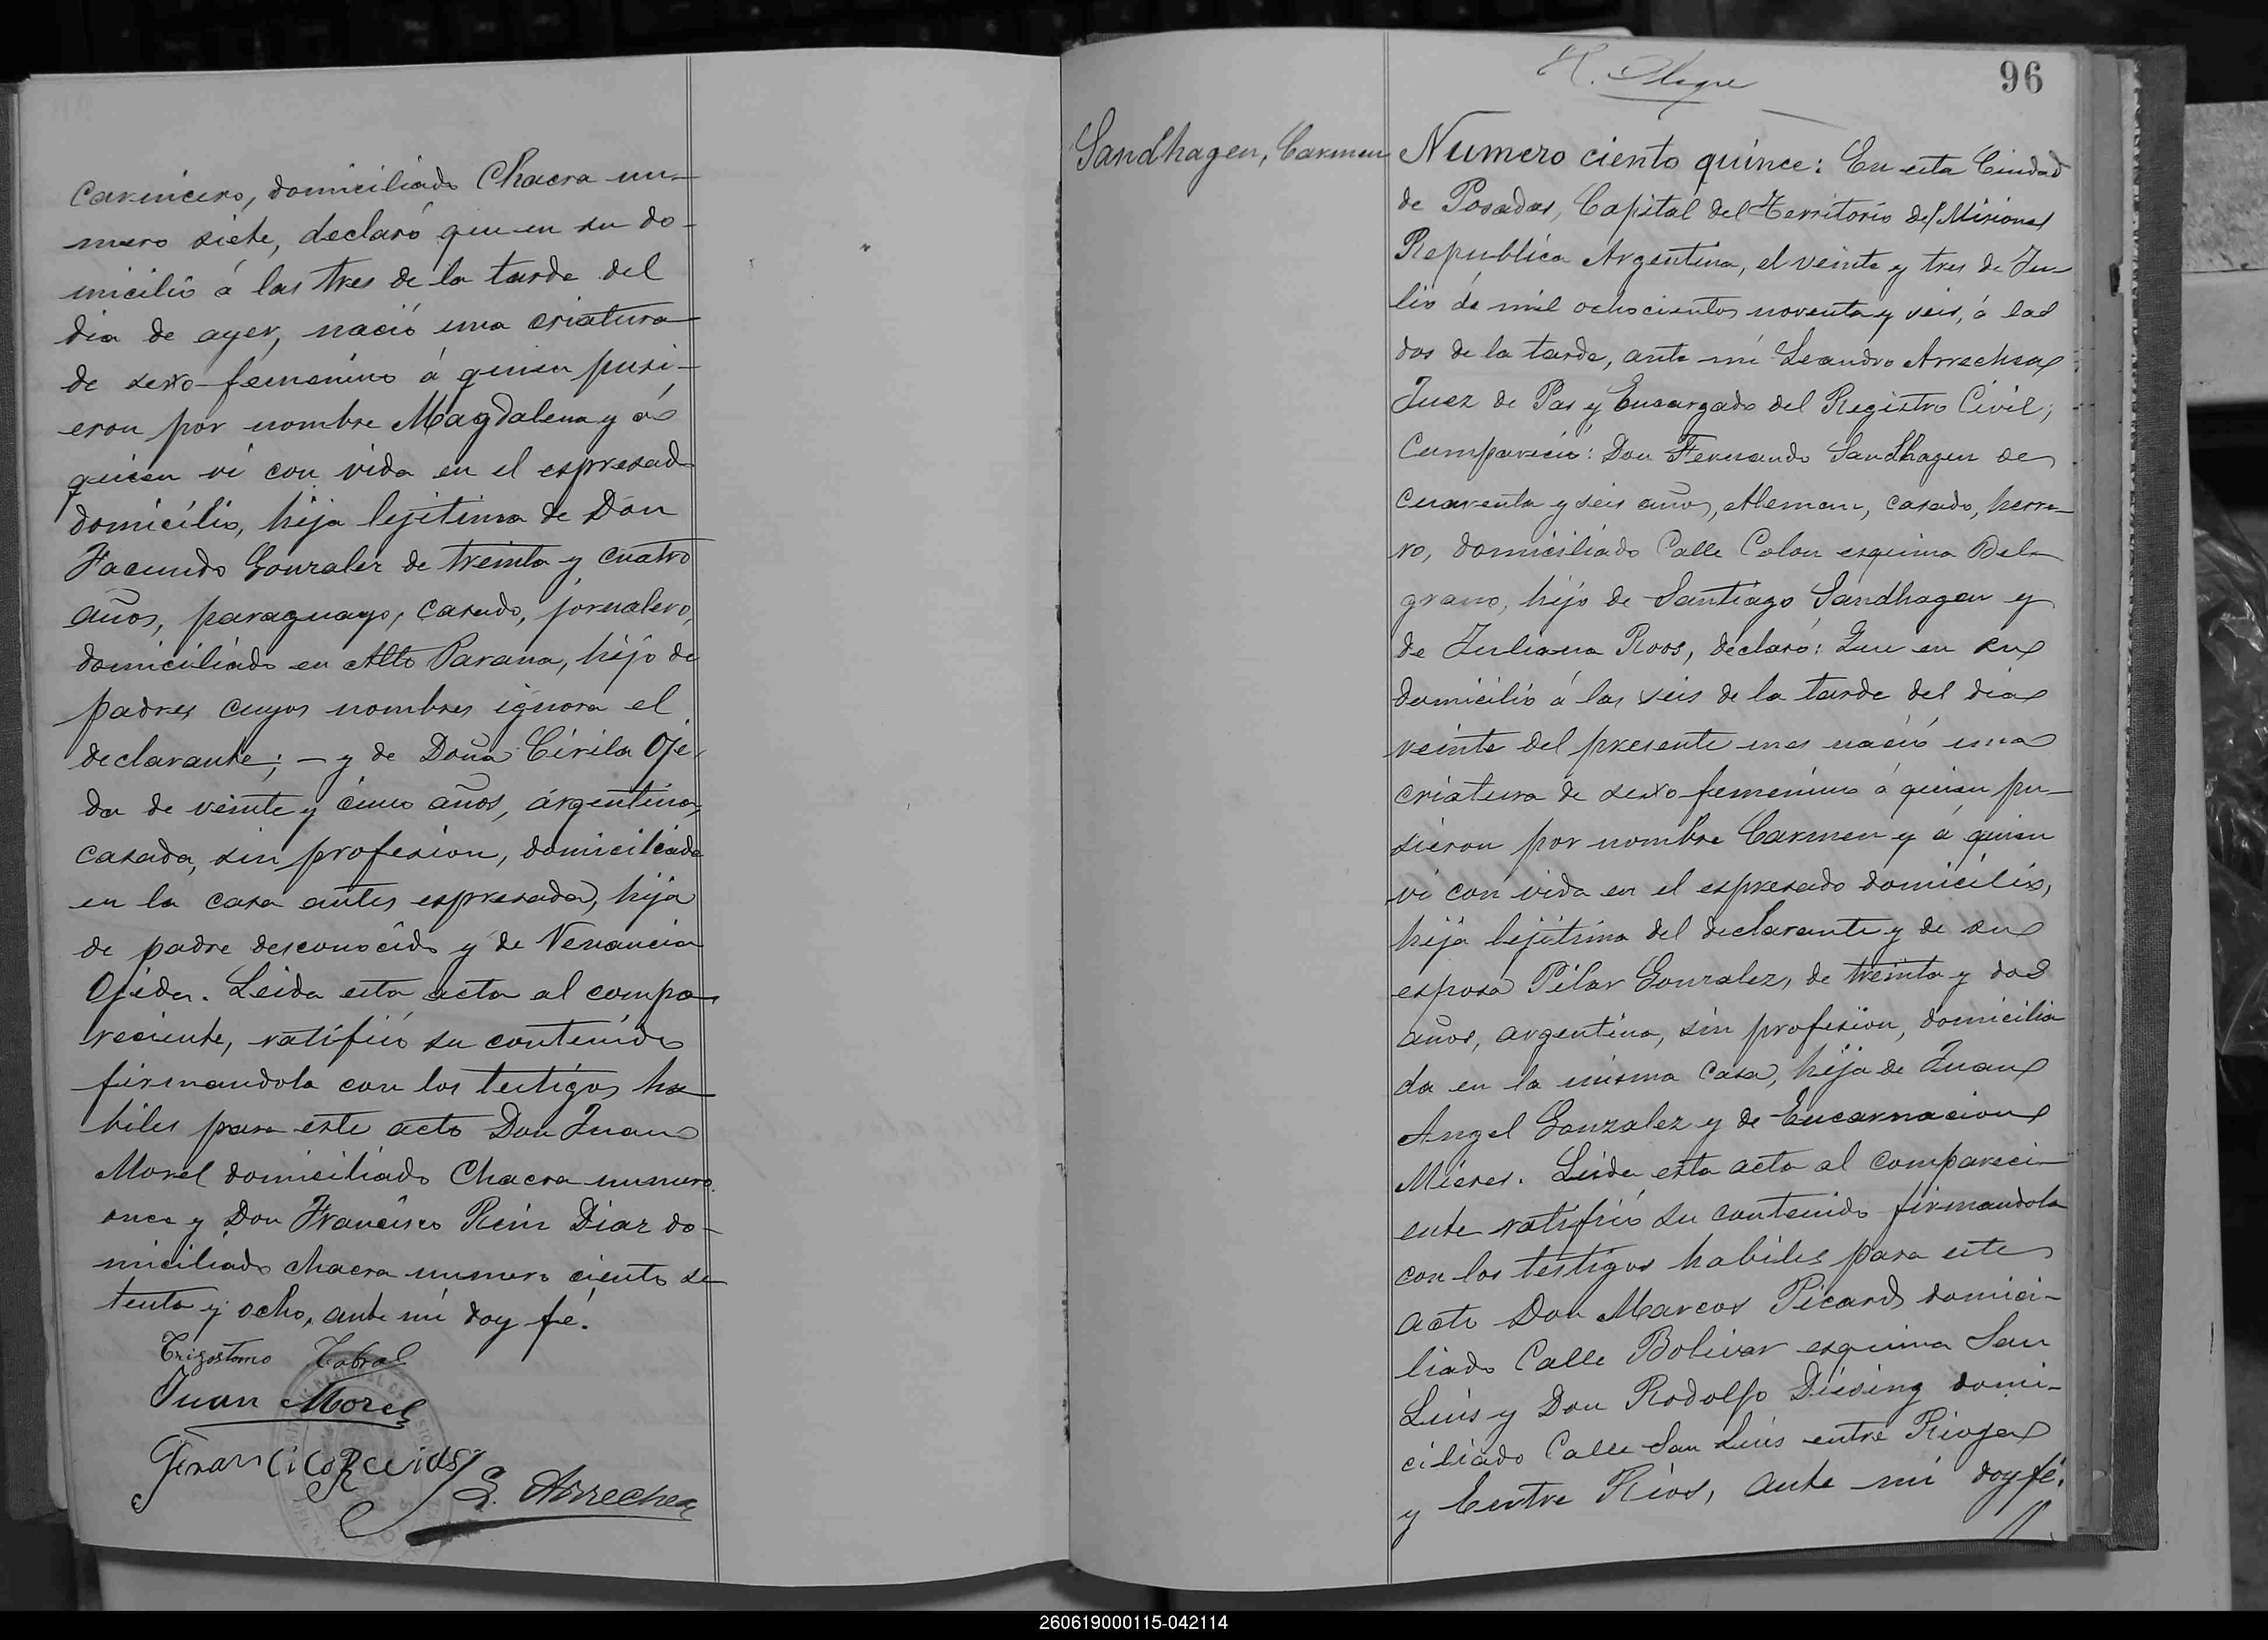 carnicero, domiciliado Chacra nu-
mero siete, declaró que en su do-
micilio á las tres de la tarde del
dia de ayer, nació una criatura
de sexo femenino á quien pusi-
eron por nombre Magdalena y á
quien vi con vida en el espresado
domicilio, hija lejitima de Don
Facundo Gonzalez de treinta y cuatro
años, paraguayo, casado, jornalero,
domiciliado en Alto Parana, hijo de
padres cuyos nombres ignora el
declarante; – y de Doña Cirila Oje-
da de veinte y cinco años, argentina,
casada, sin profesion, domiciliada
en la casa antes espresada, hija
de padre desconocido y de Venancia
Ojeda. Leida esta acta al compa-
reciente, ratificó su contenido
firmandola con los testigos ha-
biles para este acto Don Juan
Morel domiciliado Chacra numero
once y Don Francisco Rein Diaz do-
miciliado chacra numero ciento se
tenta y ocho, ante mi doy fé.
Crisostomo Cabral
Juan Morel
L. Arrechea
H. Alegre
96
Sandhagen, Carmen
Numero ciento quince: En esta Ciudad
de Posadas, Capital del Territorio de Misiones
Republica Argentina, el veinte y tres de Ju-
lio de mil ochocientos noventa y seis, á las
dos de la tarde, ante mi Leandro Arrechea
Juez de Paz y Encargado del Registro Civil;
Compareció: Don Fernando Sandhagen de
cuarenta y seis años, Aleman, casado, herre-
ro, domiciliado Calle Colon esquina Bel-
grano, hijo de Santiago Sandhagen y
de Juliana Roos, declaró: Que en su
domicilio á las seis de la tarde del dia
veinte del presente mes nació una
criatura de sexo femenino á quien pu-
sieron por nombre Carmen y á quien
vi con vida en el espresado domicilio,
hija lejitima del declarante y de su
esposa Pilar Gonzalez, de treinta y dos
años, argentina, sin profesion, domicilia
da en la misma casa, hija de Juan
Angel Gonzalez y de Encarnacion
Mieres. Leida esta acta al compareci-
ente ratificó su contenido firmandola
con los testigos habiles para este
acto Don Marcos Picard domici-
liado Calle Bolivar esquina San
Luis y Don Rodolfo Diesing domi-
ciliado Calle San Luis entre Rioja
y Entre Rios, ante mi doy fé.
260619000115-042114